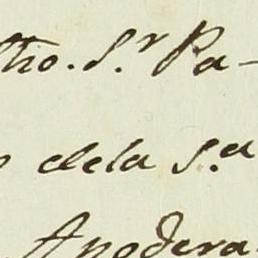 tho. S.r Pa-
dela S.a
Apodera